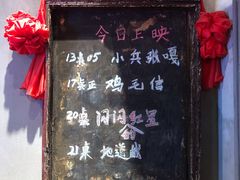 今日上映
13点05 小兵张嘎
17点正 鸡毛信
闪闪红星
21来 地道战